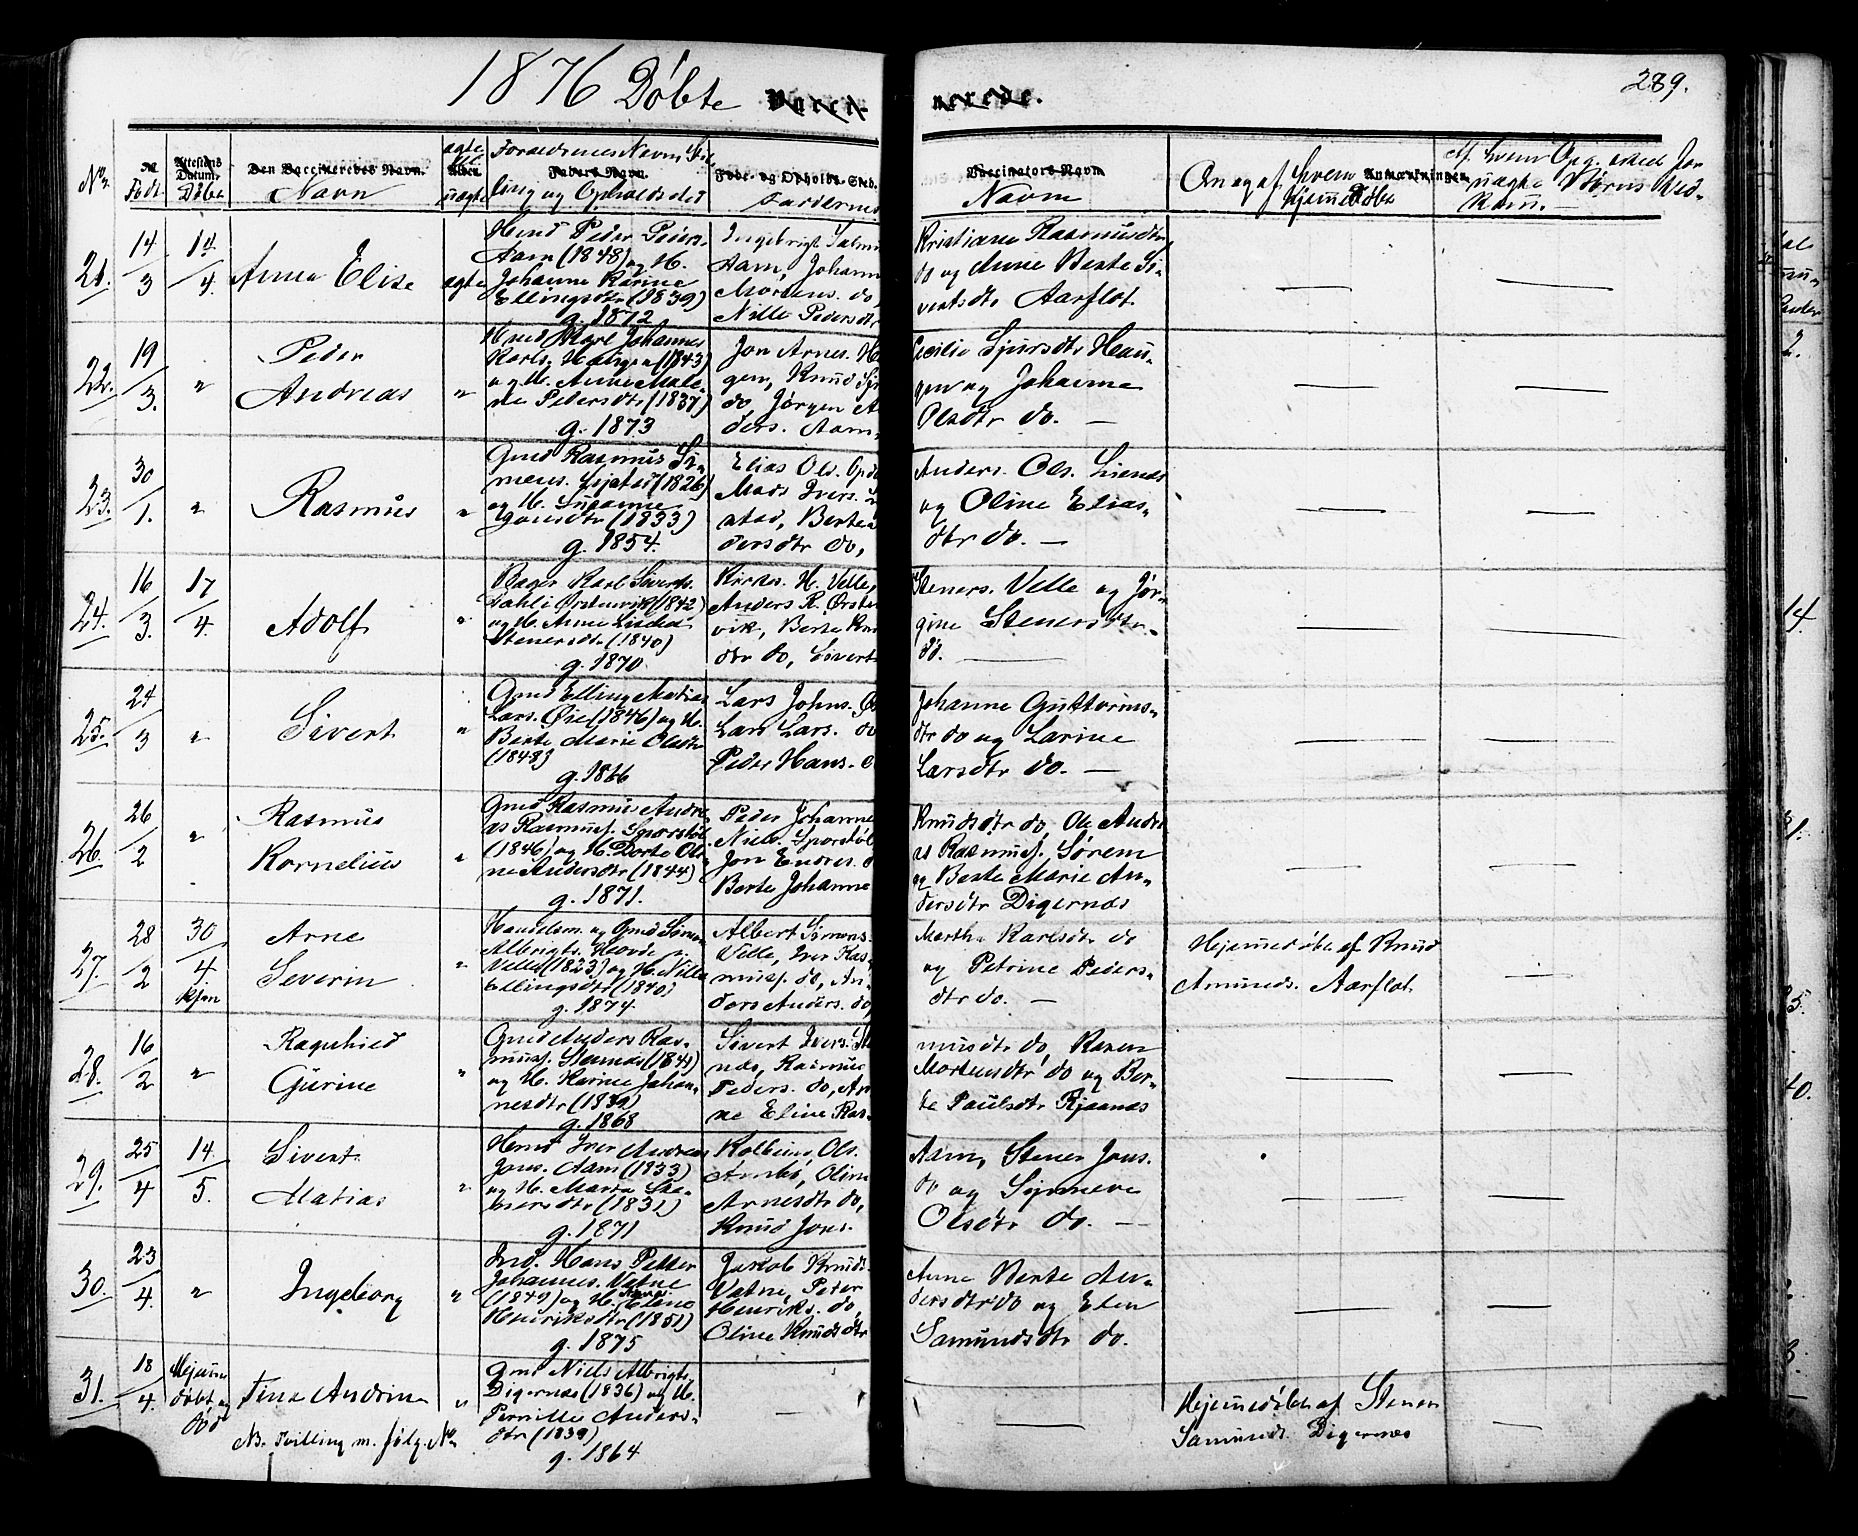 1876 Døbte Vacci- nerede.
289.
No. Født Attestens Datum. Døbt Den Vaccineredes Navn. Navn ægte ell. uægte Forældrenes Navn, Stilling og Opholdsted Faders Navn. Føde- og Opholds-Sted. Faddernes
Vaccinators Navn Navn Ang af hvem Hjemmedøbt Anmærkninger. Af hvem Opg. uægte Børns
21. 14/3 14/4 Anna Elise ægte
Hmd Peder Peders.
Aam (1848) og H.
Johanne Karine
Ellingsdtr (1839)
g. 1872
Ingebrigt
Aam, Johann
Mortens. do,
Nille Pedersdtr
Kristiane Rasmusdtr
do og Anne Berte Si-
vertsdtr Aarflot.
22. 19/3. " Peder
Andreas "
Hmd Karl Johannes
Karls. Haugen (1843)
og H. Anne Male-
ne Pedersdtr (1837)
g. 1873
Jon Arnes. Ha
gen, Knud
do, Jørgen A
ders. Aam.
Cecilie Sjursdtr Hau-
gen og Johanne
Olsdtr do. —
23. 30/1. " Rasmus "
Gmd Rasmus Si-
mens. (1826)
og H. Susanne
Jonsdtr (1833)
g. 1854.
Elias Ols. Opd
Mads Ivers.
stad, Berte
dersdtr do,
Anders. Ols.
og Oline Elias-
dtr do. —
24. 16/3. 17/4. Adolf "
Bager Karl Siverts.
Dahl i Ørstenvik (1842)
og H. Anne
Stenersdtr (1840)
g. 1870
H. Velle,
Anders R. Ørste
vik, Berte Knu
dtr do, Sivert
Steners. Velle og Jør-
gine Stenersdtr
do. —
25. 24/3 " Sivert "
Gmd Elling Matias
Lars. Øie (1846) og H.
Berte Marie Olsdtr
(1848)
g. 1866
Lars Johns. Ø
Lars Lars. do
Peder Hans. d
Johanne Guttorms-
dtr do og Larine
Larsdtr do. —
26. 26/2 " Rasmus
Kornelius "
Gmd Rasmus Andre
as Rasmuss. Sporstøl
(1846) og H. Dorte Oli-
ne Andersdtr (1844)
g. 1871.
Peder Johanne
Niels. Sporstøl
Jon Endres. d
Berte Johanne
Knudsdtr do, Ole Andre
as Rasmuss. Sørem
og Berte Marie An-
dersdtr Digernæs
27. 28/2 30/4 Arne
Severin "
Handelsm. og Gmd Simen
Albrigts. Hovde
Velle (1823) og H. Nille
Ellingsdtr (1840)
g. 1874.
Albert Simens.
Velle, Iver Ras-
muss. do, An-
ders Anders. do
Martha Karlsdtr do
og Petrine Peders-
dtr do. —
Hjemmedøbt af Knud
Amunds. Aarflot
28. 16/2 " Ragnhild
Gurine "
Gmd Anders Ras-
muss. (1841)
og H. Karine Johan-
nesdtr (1839)
g. 1868
Sivert Ivers.
næs, Rasmus
Peders. do, An
ne Eline Ras-
musdtr do, Karen
Mortensdtr do og Ber-
te Paulsdtr Kjaanæs
29. 25/4 14/5. Sivert
Matias "
Hmd Iver Andreas
Jons. Aam (1833)
og H. Marta Ste-
nersdtr (1831)
g. 1871
Kolbein Ols.
Oline
Arnesdtr do,
Knud Jons.
Aam, Stener Jons.
do og Synneve
Olsdtr do. —
30. 23/4. " Ingeborg "
Ind. Hans Petter
Johannes. Vatne
(1849) og H. Elene
Henriksdtr (1851)
g. 1875
Jakob Knuds.
Vatne, Peter
Henriks. do,
Oline Knudsdtr
Anne Berte An-
dersdtr do og Elen
Samundsdtr do.
31. 18/4. Hjemme
døbt og
død
Tina Andrine "
NB. Tvilling m. følg. No
Gmd Niels Albrigts.
Digernæs (1836) og H.
Pernille Anders-
dtr (1839)
g. 1864
Hjemmedøbt af Stener
Samunds. Digernæs